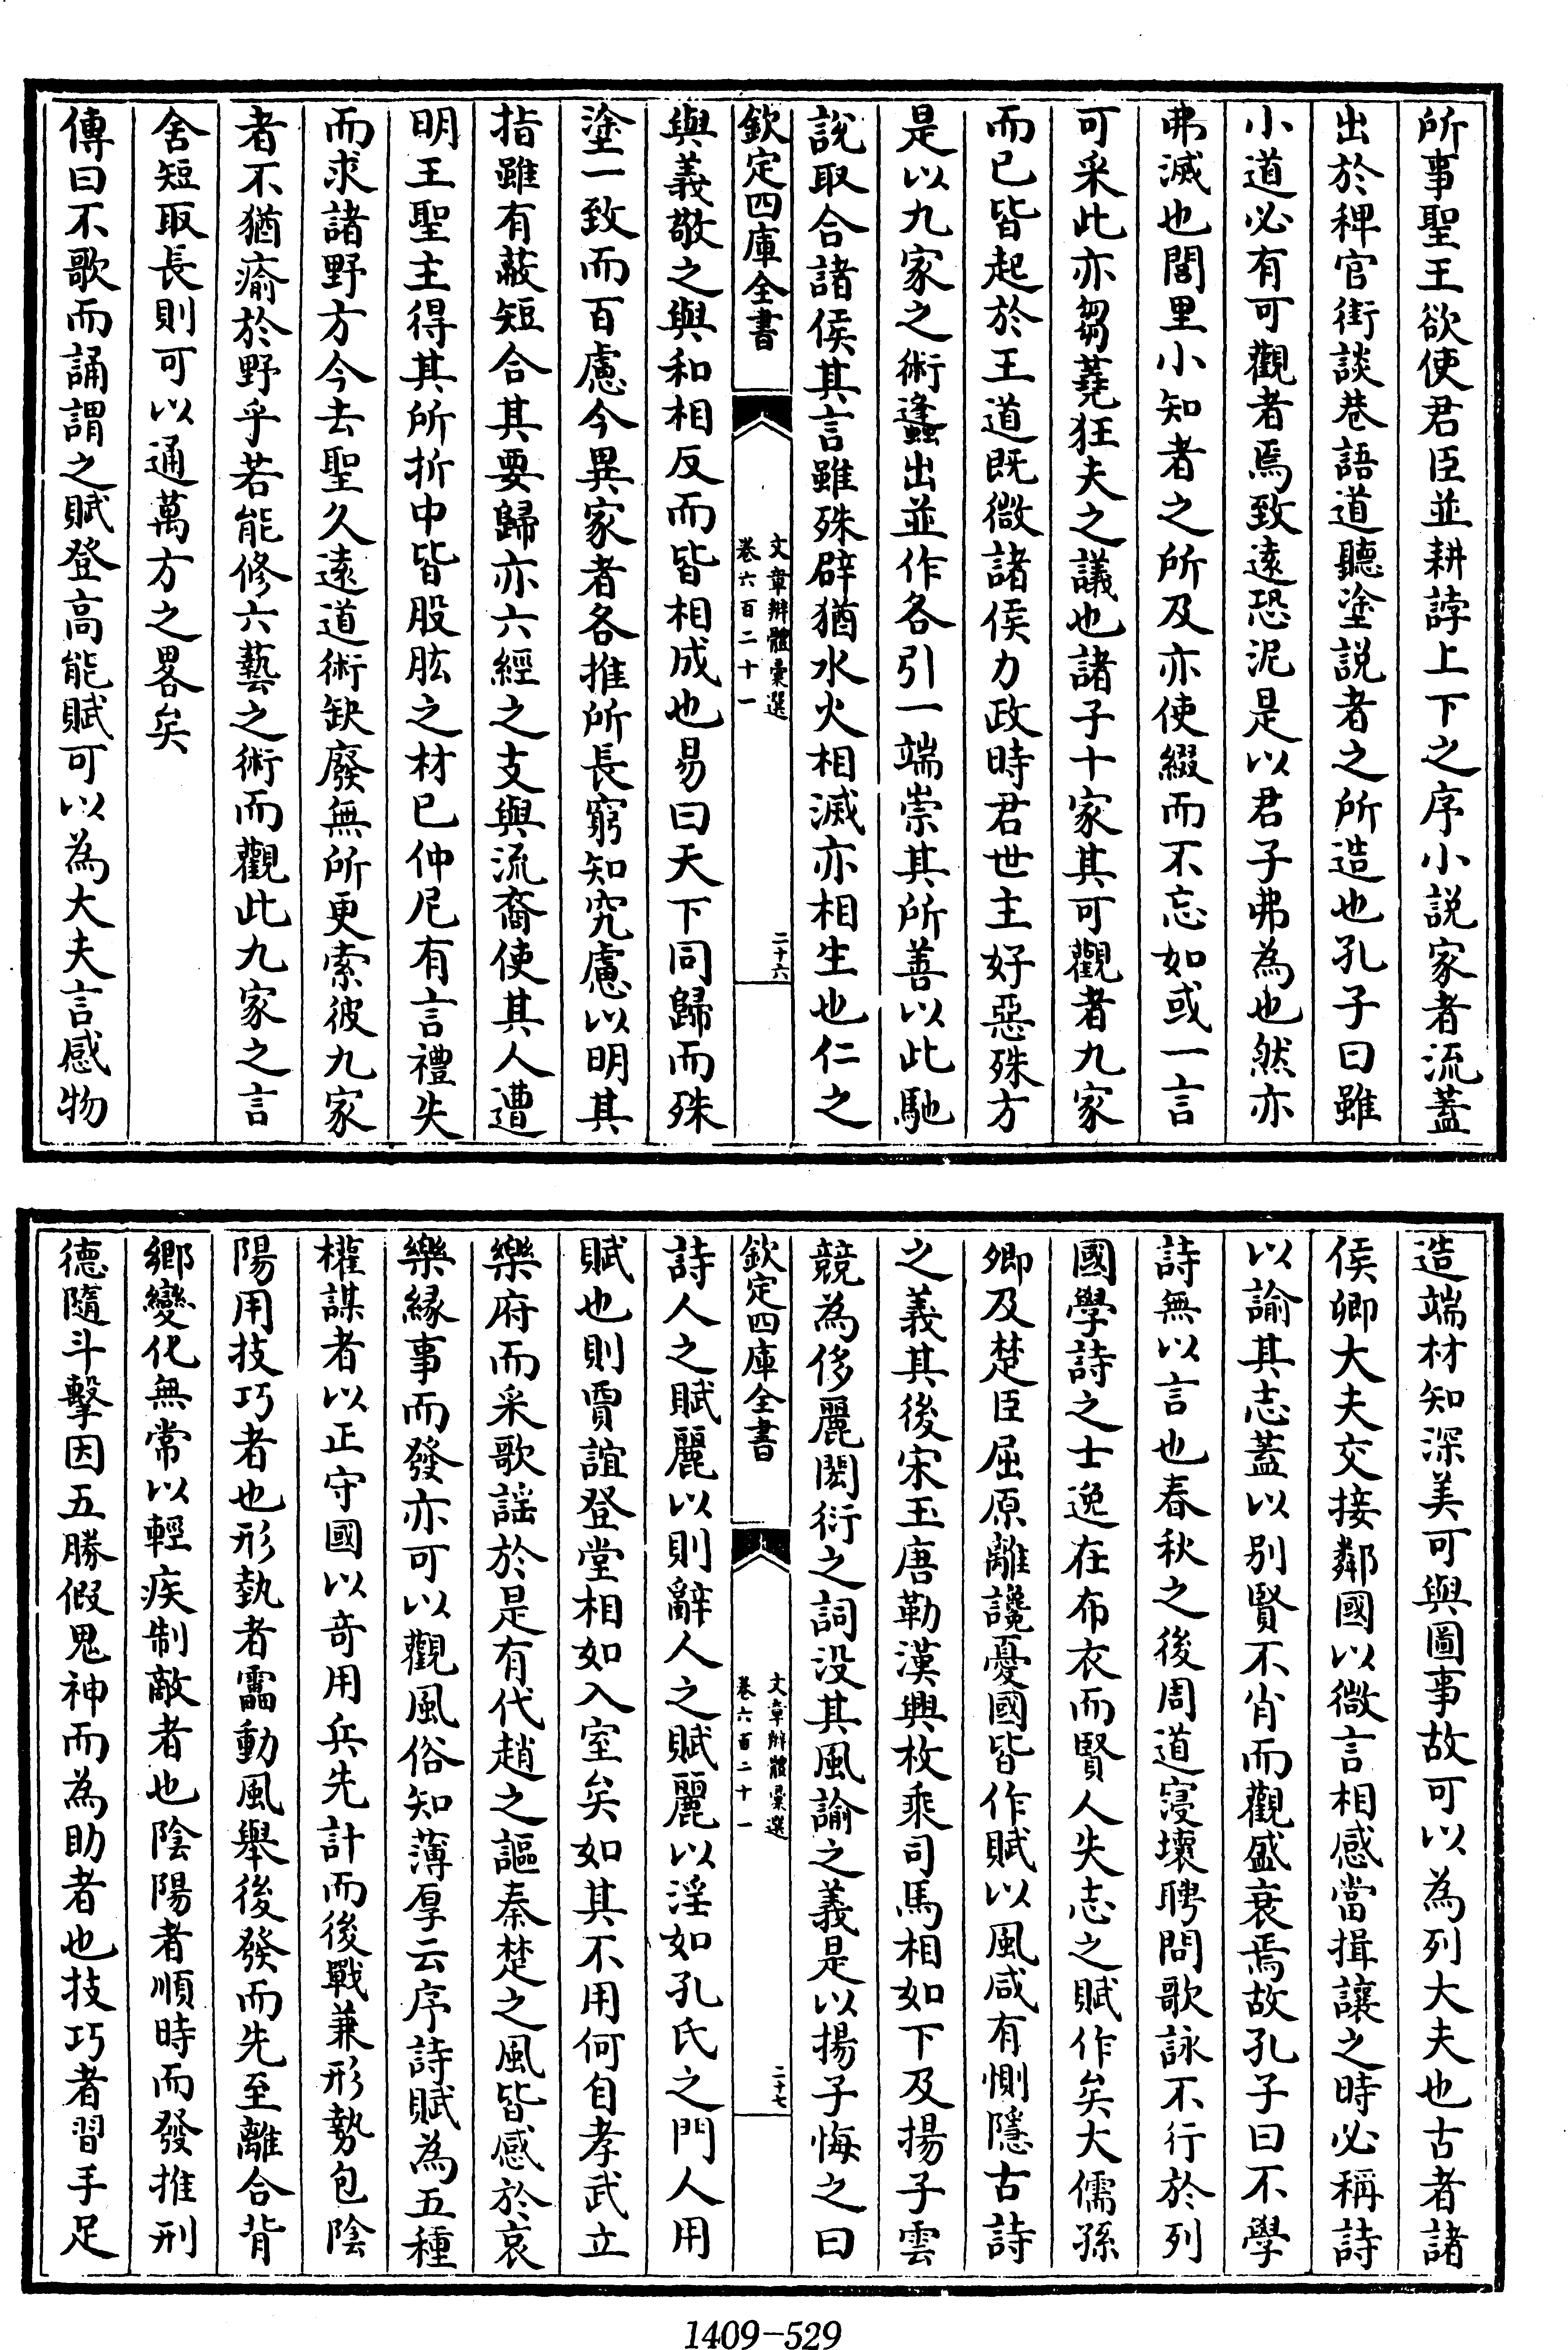 所事聖王欲使君臣並耕誖上下之序小説家者流蓋
出於稗官街談巷語道聽塗説者之所造也孔子曰雖
小道必有可觀者焉致遠恐泥是以君子弗為也然亦
弗滅也閭里小知者之所及亦使綴而不忘如或一言
可采此亦芻蕘狂夫之議也諸子十家其可觀者九家
而已皆起於王道既微諸侯力政時君世主好惡殊方
是以九家之術蠭出並作各引一端崇其所善以此馳
說取合諸侯其言雖殊辟猶水火相滅亦相生也仁之
欽定四庫全書
文章辨體彙選
卷六百二十一
二十六
與義敬之與和相反而皆相成也易曰天下同歸而殊
塗一致而百慮今異家者各推所長窮知究慮以明其
指雖有蔽短合其要歸亦六經之支與流裔使其人遭
明王聖主得其所折中皆股肱之材已仲尼有言禮失
而求諸野方今去聖久遠道術缺廢無所更索彼九家
者不猶瘉於野乎若能修六藝之術而觀此九家之言
舍短取長則可以通萬方之畧矣
傳曰不歌而誦謂之賦登高能賦可以為大夫言感物
造端材知深美可與圖事故可以為列大夫也古者諸
侯卿大夫交接鄰國以微言相感當揖讓之時必稱詩
以諭其志蓋以别賢不肖而觀盛衰焉故孔子曰不學
詩無以言也春秋之後周道寖壞聘問歌詠不行於列
國學詩之士逸在布衣而賢人失志之賦作矣大儒孫
卿及楚臣屈原離讒憂國皆作賦以風咸有惻隱古詩
之義其後宋玉唐勒漢興枚乘司馬相如下及揚子雲
競為侈麗閎衍之詞没其風諭之義是以揚子悔之曰
欽定四庫全書
文章辨體彙選
卷六百二十一
二十七
詩人之賦麗以則辭人之賦麗以淫如孔氏之門人用
賦也則賈誼登堂相如入室矣如其不用何自孝武立
樂府而采歌謡於是有代趙之謳秦楚之風皆感於哀
樂緣事而發亦可以觀風俗知薄厚云序詩賦為五種
權謀者以正守國以奇用兵先計而後戰兼形勢包陰
陽用技巧者也形埶者靁動風舉後發而先至離合背
鄉變化無常以輕疾制敵者也陰陽者順時而發推刑
德隨斗擊因五勝假鬼神而為助者也技巧者習手足
1409-529